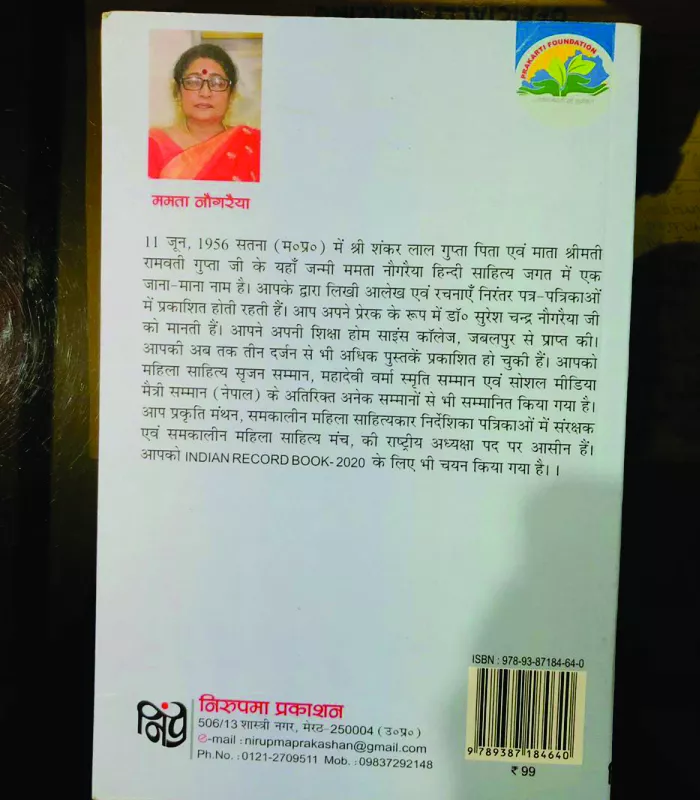 PRAKARTI FOUNDATION
ममता नौगरैया
11 जून, 1956 सतना (म०प्र०) में श्री शंकर लाल गुप्ता पिता एवं माता श्रीमती
रामवती गुप्ता जी के यहाँ जन्मी ममता नौगरैया हिन्दी साहित्य जगत में एक
जाना-माना नाम है। आपके द्वारा लिखी आलेख एवं रचनाएँ निरंतर पत्र-पत्रिकाओं
में प्रकाशित होती रहती हैं। आप अपने प्रेरक के रूप में डॉ० सुरेश चन्द्र नौगरैया जी
को मानती हैं। आपने अपनी शिक्षा होम साइंस कॉलेज, जबलपुर से प्राप्त की।
आपकी अब तक तीन दर्जन से भी अधिक पुस्तकें प्रकाशित हो चुकी हैं। आपको
महिला साहित्य सृजन सम्मान, महादेवी वर्मा स्मृति सम्मान एवं सोशल मीडिया
मैत्री सम्मान (नेपाल) के अतिरिक्त अनेक सम्मानों से भी सम्मानित किया गया है।
आप प्रकृति मंथन, समकालीन महिला साहित्यकार निर्देशिका पत्रिकाओं में संरक्षक
एवं समकालीन महिला साहित्य मंच, की राष्ट्रीय अध्यक्षा पद पर आसीन हैं।
आपको INDIAN RECORD BOOK- 2020 के लिए भी चयन किया गया है। ।
ISBN : 978-93-87184-64-0
9789387184640
₹ 99
निरुपमा प्रकाशन
506/13 शास्त्री नगर, मेरठ-250004 (उ०प्र०)
e-mail : nirupmaprakashan@gmail.com
Ph.No. : 0121-2709511 Mob. : 09837292148